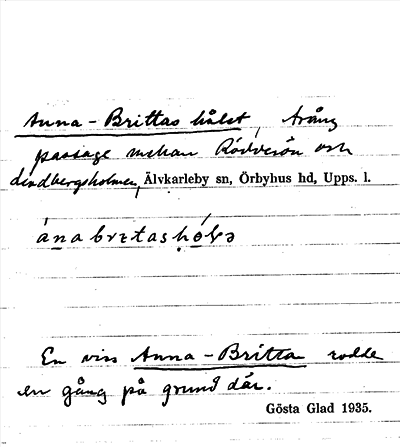 Anna-Brittas hålet, trång
passage mellan Rödveön och
Lindbergsholmen, Älvkarleby sn, Örbyhus hd, Upps. l.
En viss Anna-Britta rodde
en gång på grund där.
Gösta Glad 1935.